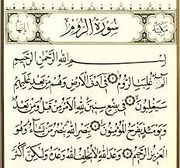 سورة الروم
بسم الله الرحمن الرحيم
الم غلبت الروم في أدنى الأرض وهم من بعد غلبهم
سيغلبون في بضع سنين لله الأمر من قبل ومن بعد
ويومئذ يفرح المؤمنون بنصر الله ينصر من يشاء وهو
العزيز الرحيم وعد الله لا يخلف الله وعده ولكن أكثر